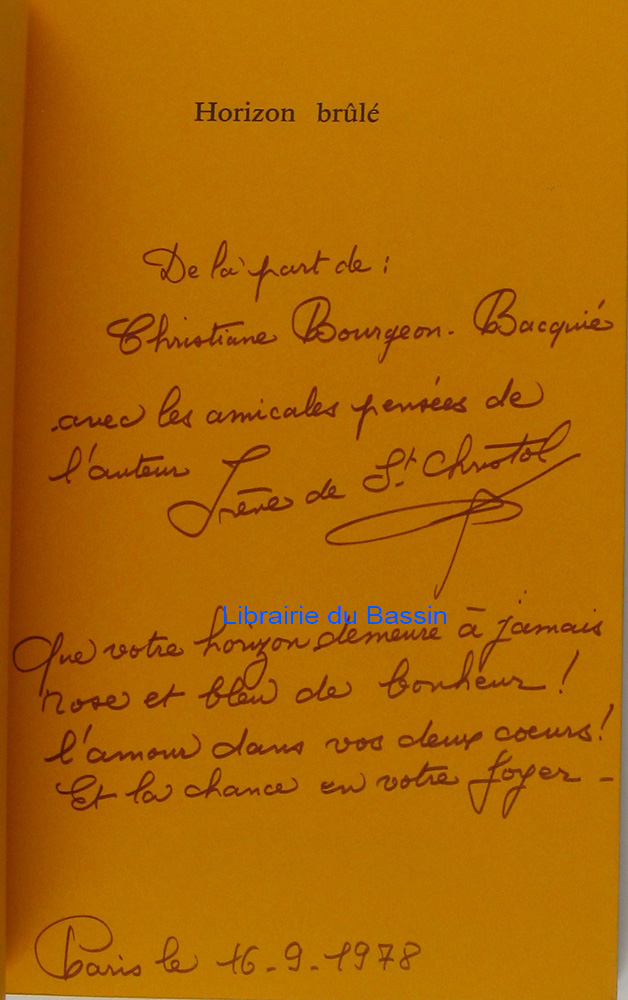 Horizon brûlé
De la part de :
Christiane Bourgeon - Bacquié
avec les amicales pensées de
l'auteur Irène de St Christol
Librairie du Bassin
Que votre horizon demeure à jamais
rose et bleu de bonheur !
l'amour dans vos deux coeurs !
Et la chance en votre foyer -
Paris le 16-9-1978